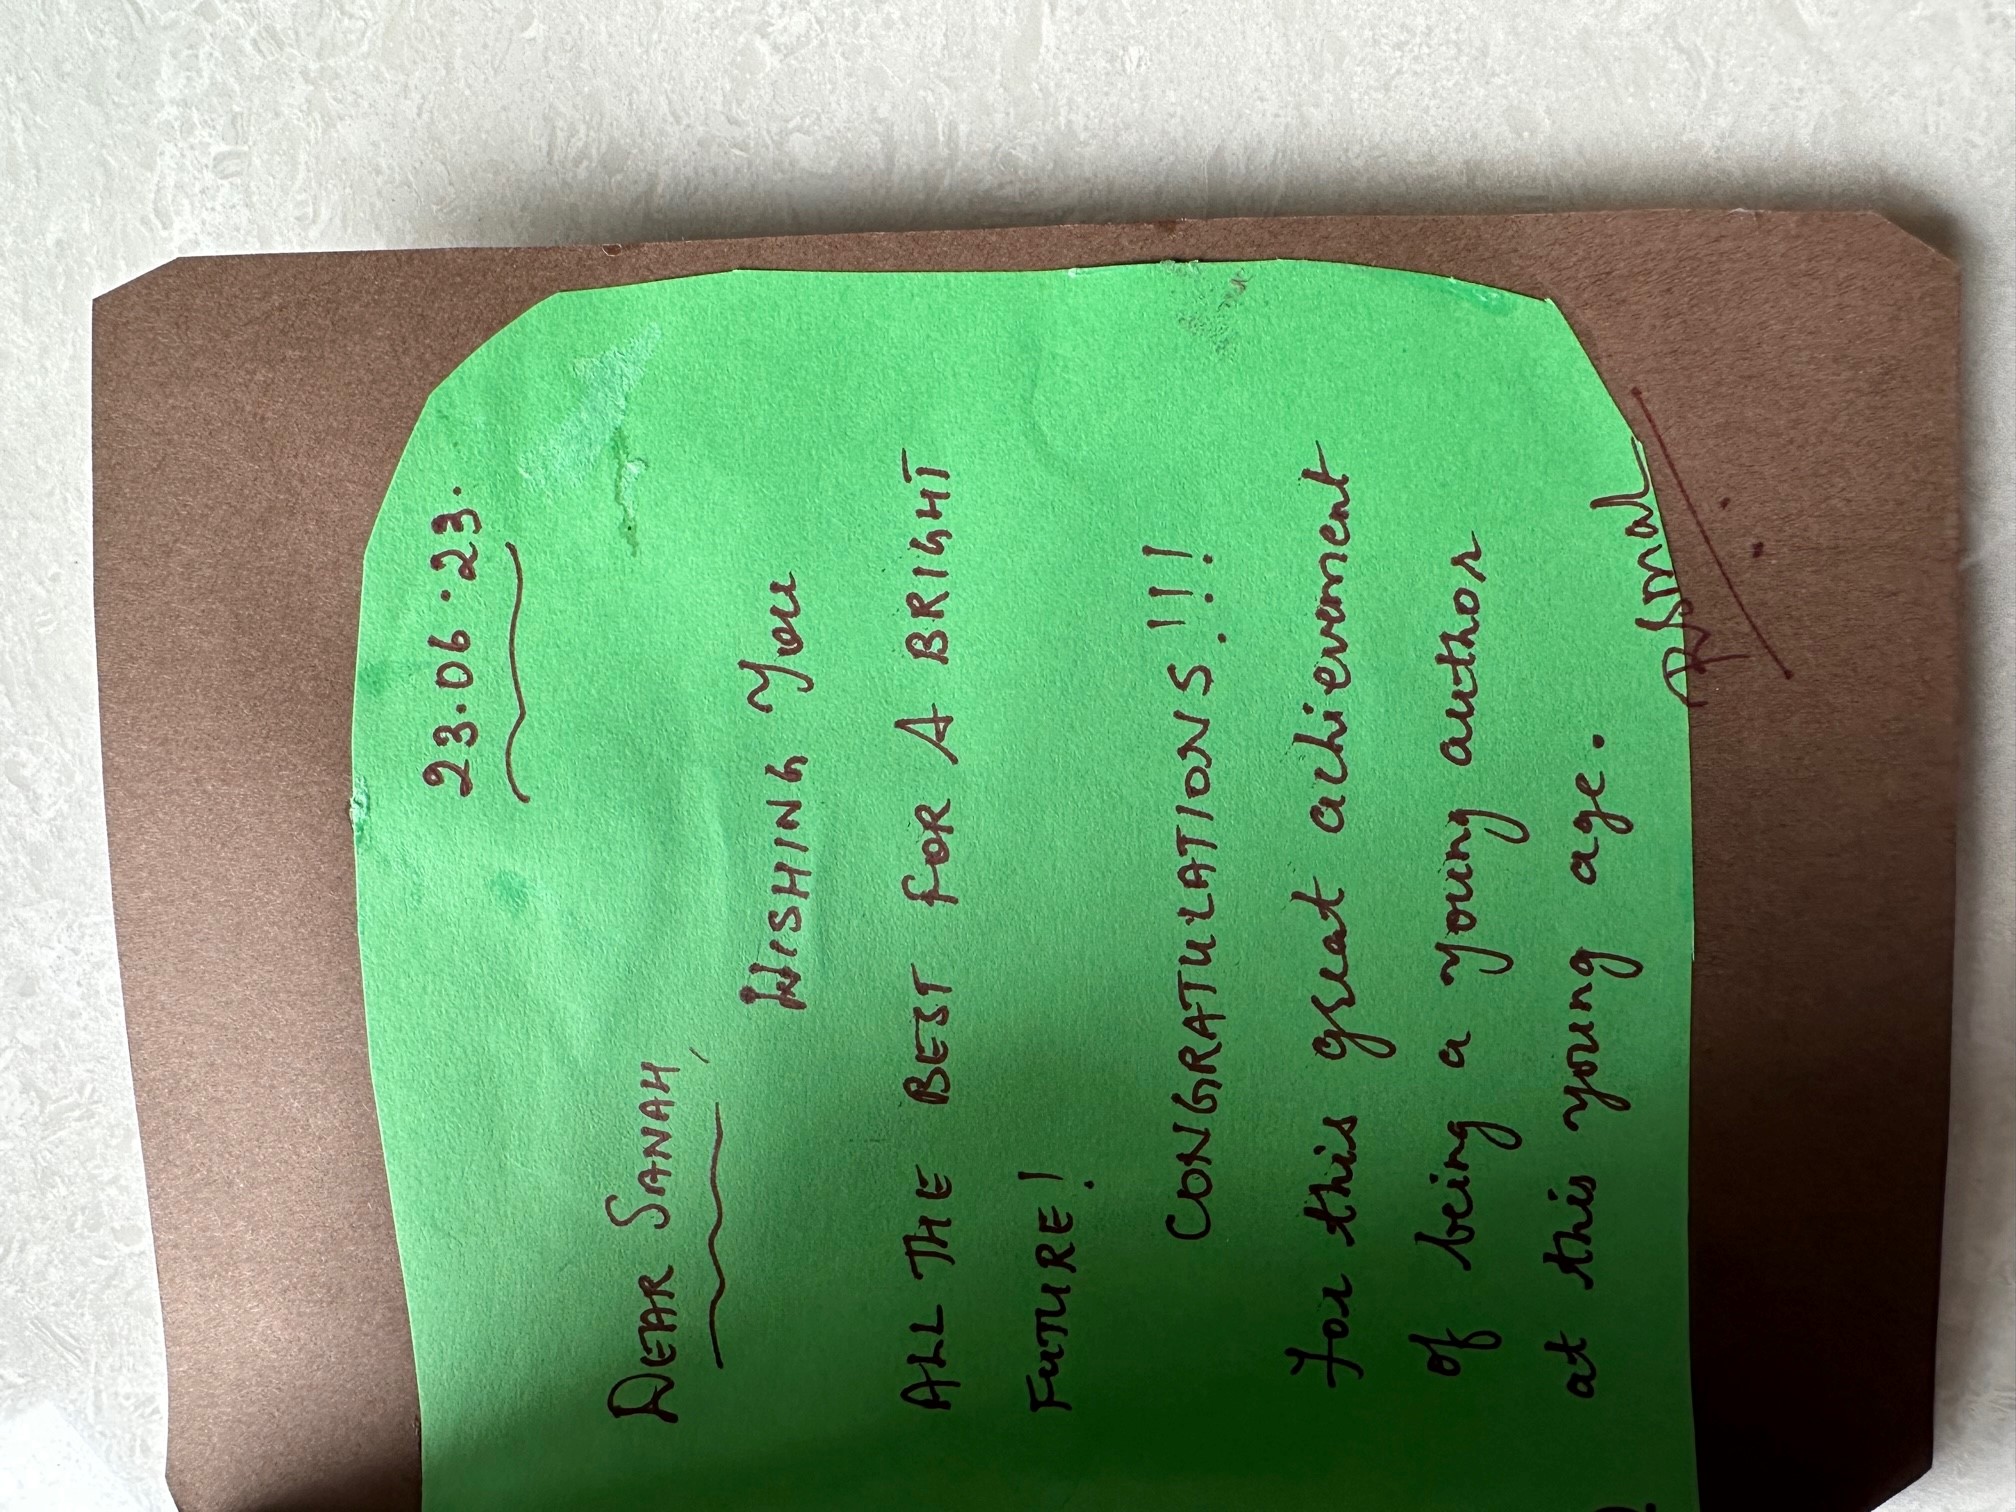 23.06.23.
DEAR SANAH,
WISHING You
ALL THE BEST FOR A BRIGHT
FUTURE!
CONGRATULATIONS!!!
For this great achievement
of being a young author
at this young age.